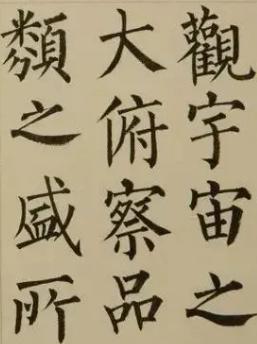 觀宇宙之
大俯察品
類之盛所